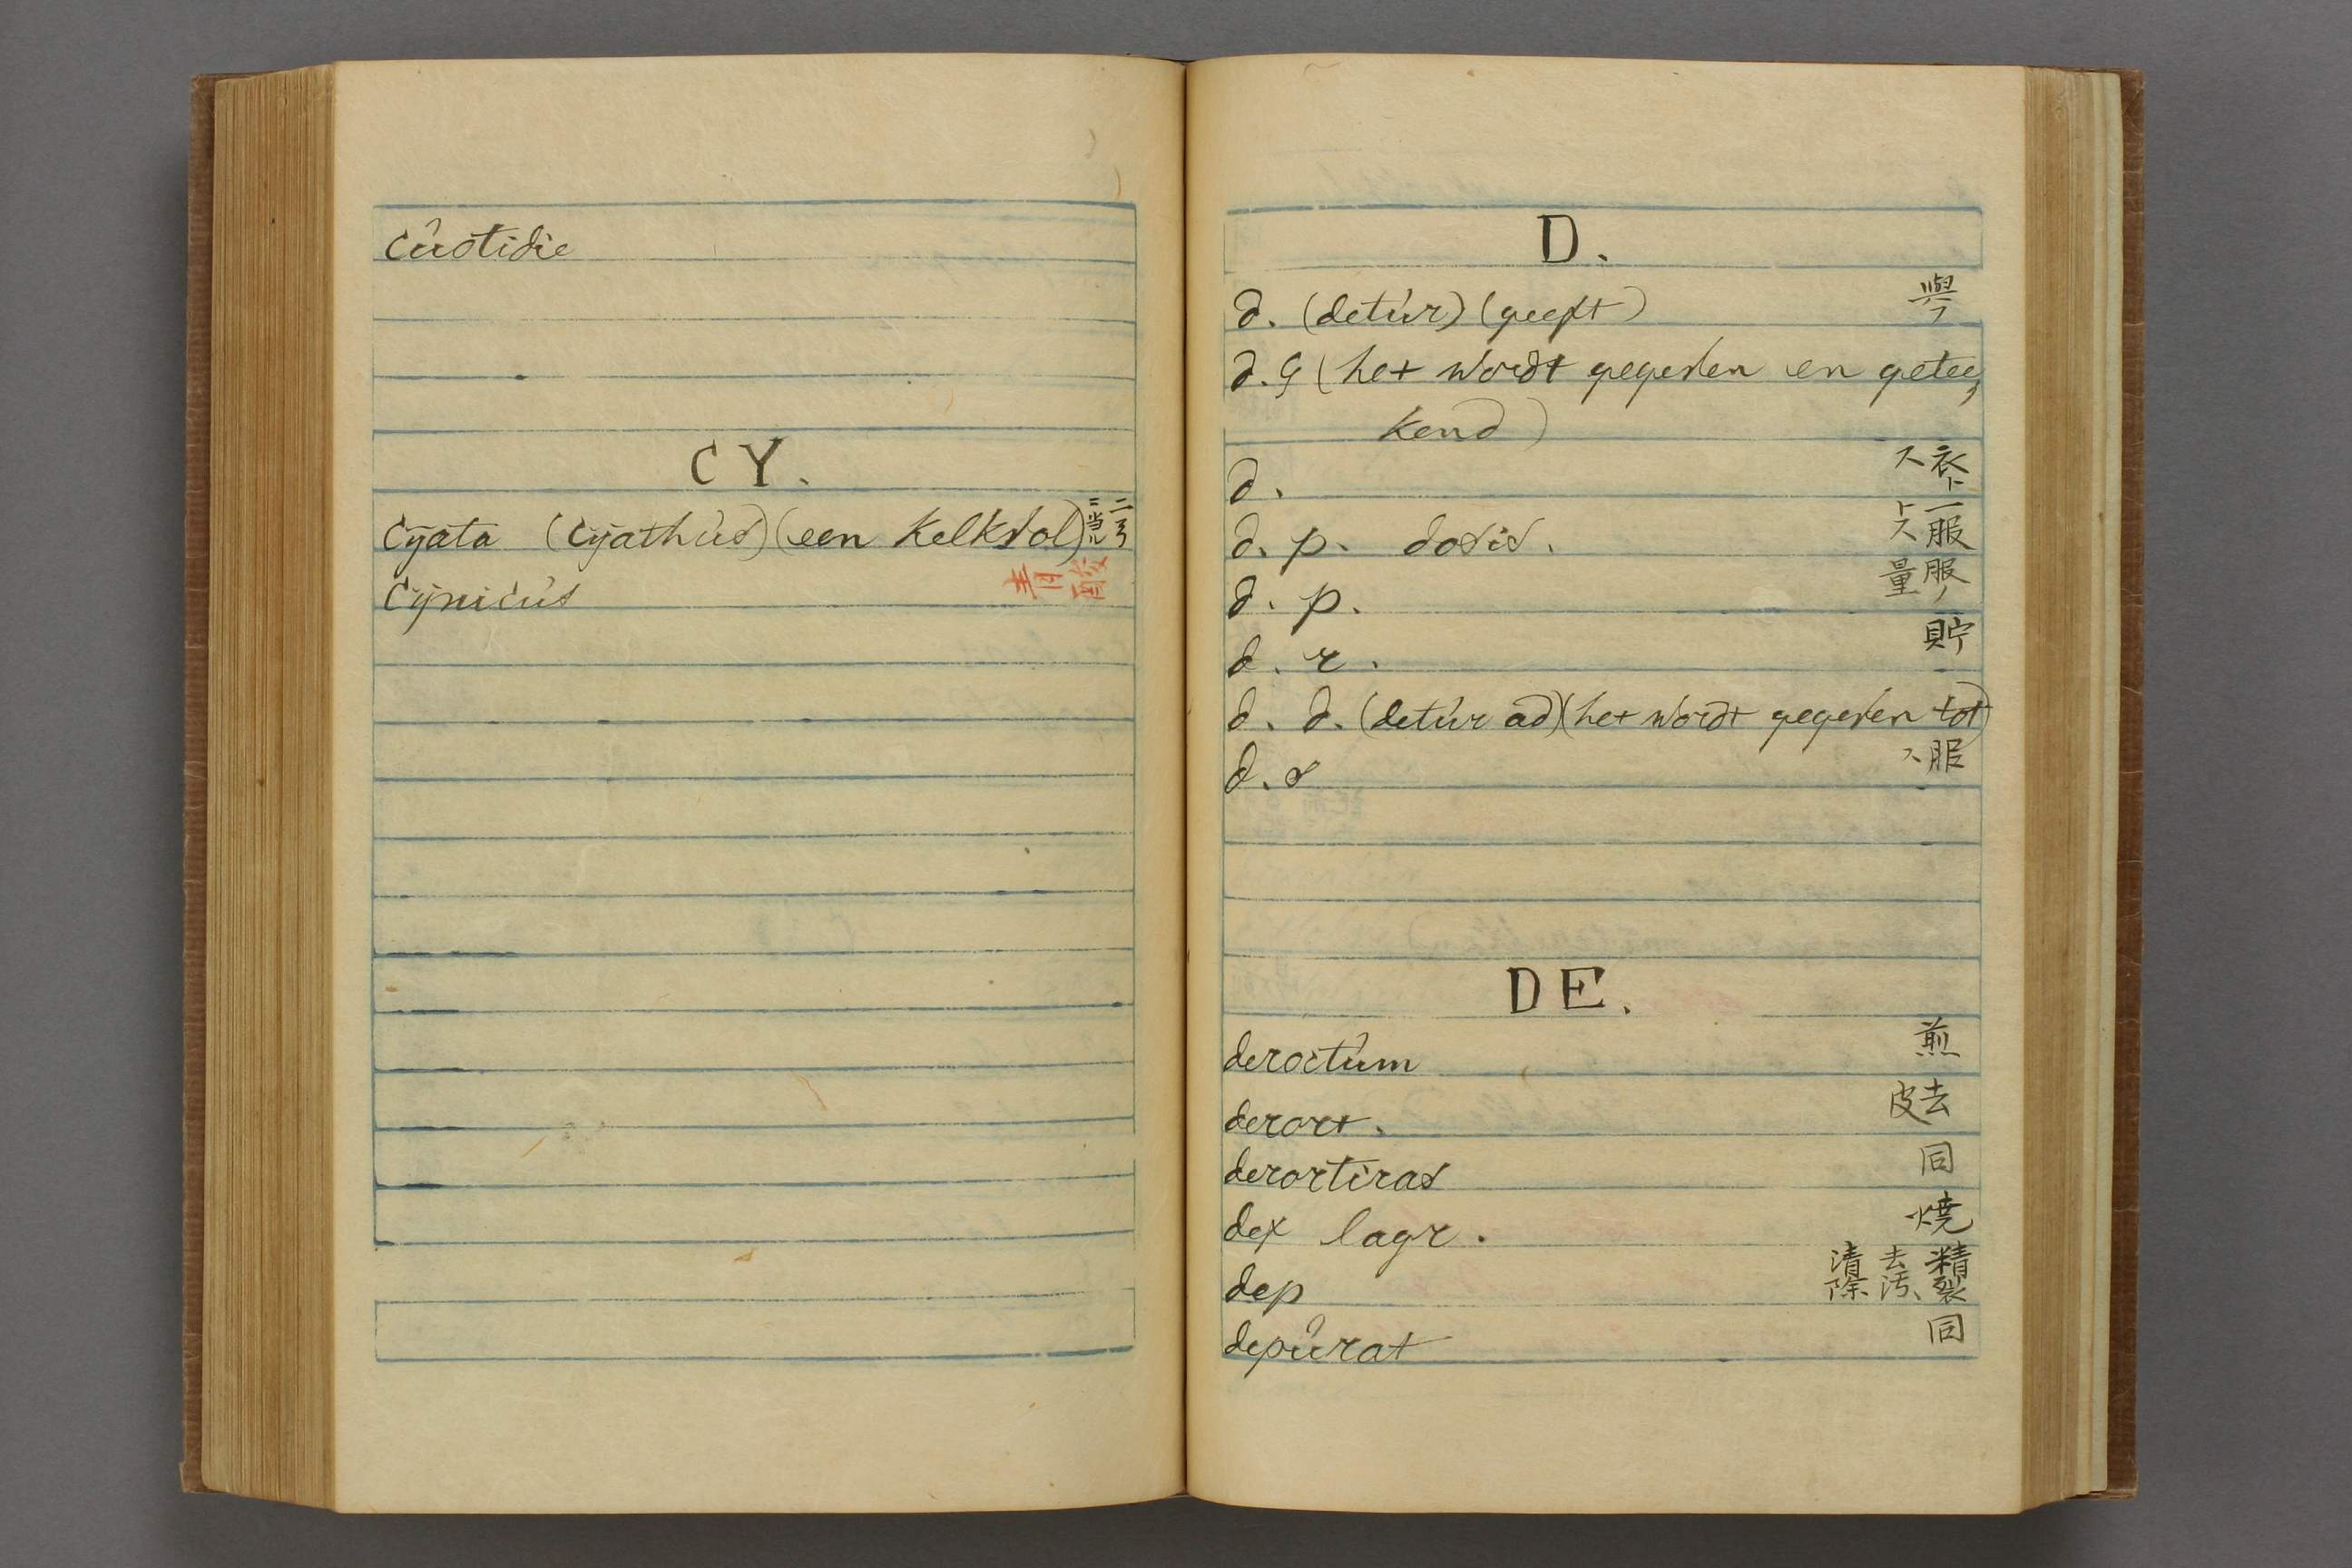 cŭotidie
CY.
Cÿata (Cÿathŭs) (een Kelkvol) 二弓二当ル
Cÿnicŭs 酸
D.
d. (detŭr) (geeft) 與フ
d. G (het wordt gegeven en getee,
kend)
d.
d. p. dosis. 一服トス
d. p. 服ノ量
d. r. 貯
d. d. (detŭr ad) (het wordt gegeven tot)
d. s 服ス
DE.
deroctŭm 煎
derort. 去皮
derortiras 同
dex lagr. 焼
dep 精製 去汚、清除
depŭrat 同